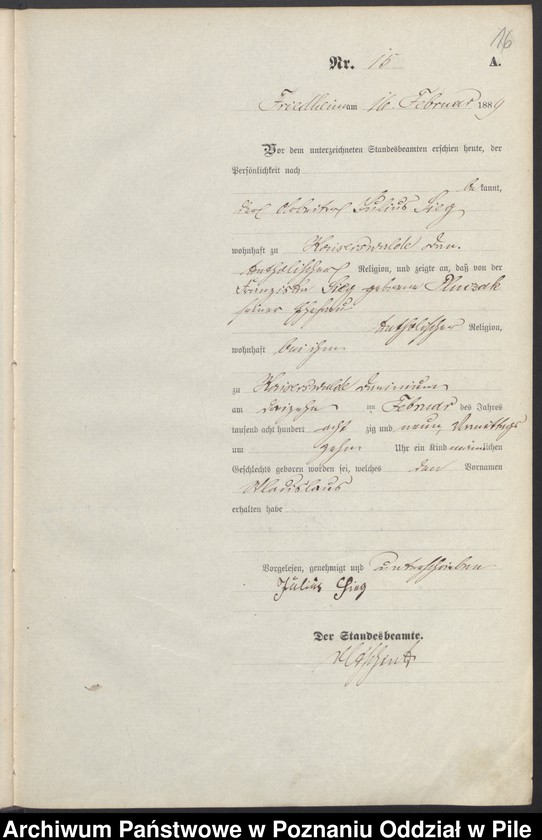 16
Nr. 15 A.
Friedheim am 16 Februar 1889
Vor dem unterzeichneten Standesbeamten erschien heute, der
Persönlichkeit nach
be kannt,
der Arbeiter Julius Sieg
wohnhaft zu Kaiserswalde Dom.
katholischer Religion, und zeigte an, daß von der
Franziska Sieg geborene
seiner Ehefrau
katholischer Religion,
wohnhaft bei ihm
zu Kaiserswalde Dominium
am dreizehn ten Februar des Jahres
tausend acht hundert acht zig und neun Vormittags
um zehn Uhr ein Kind männlichen
Geschlechts geboren worden sei, welches den Vornamen
Wladislaus
erhalten habe
Vorgelesen, genehmigt und unterschrieben
Julius Sieg
Der Standesbeamte.
Archiwum Państwowe w Poznaniu Oddział w Pile